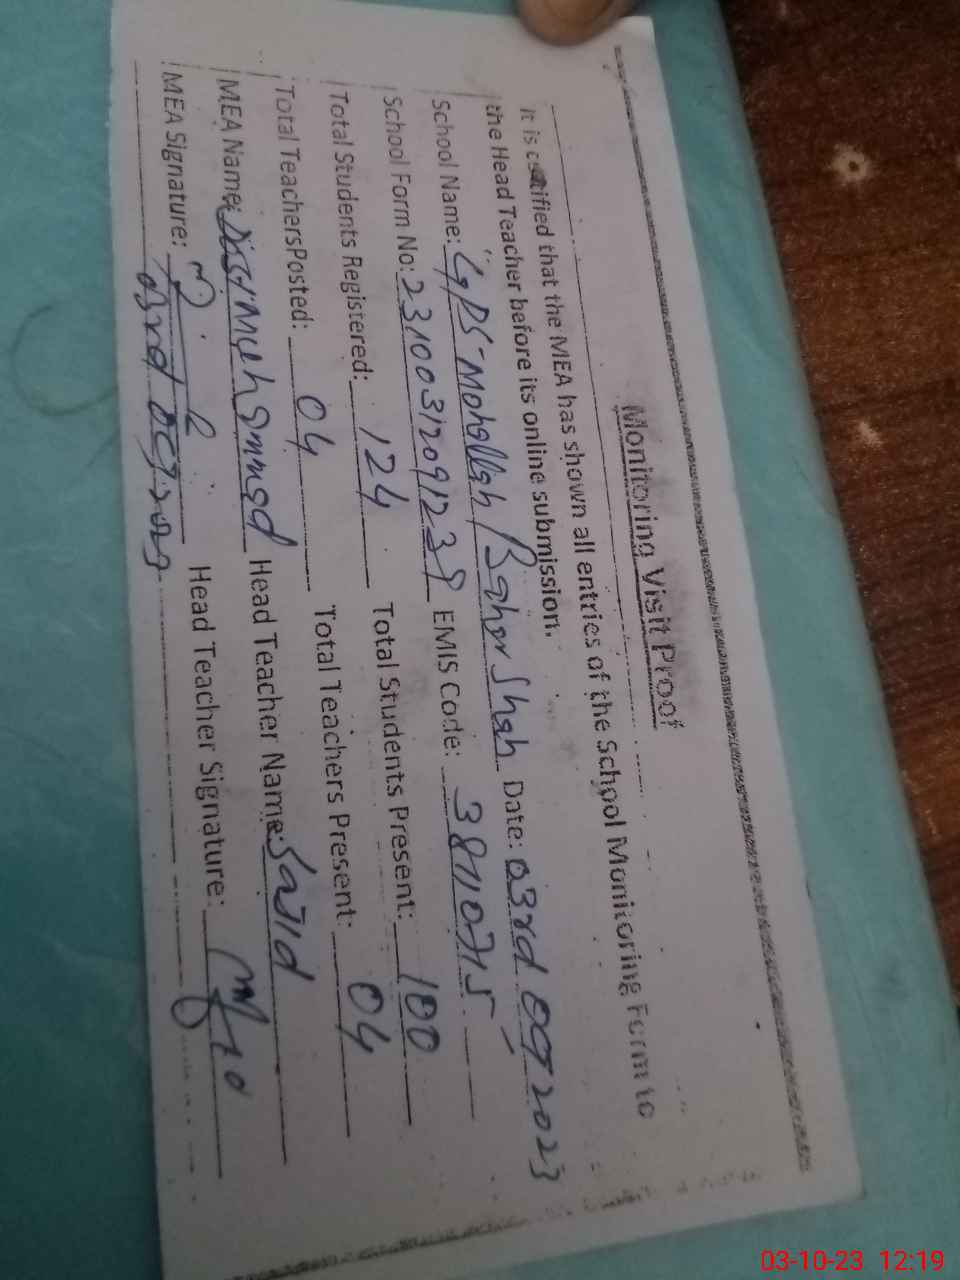 Monitoring Visit Proof
It is certified that the MEA has shown all entries of the School Monitoring Form to
the Head Teacher before its online submission.
School Name: GPS-Mohallah Baher Shah Date: 03rd OCT 2023
School Form No: EMIS Code:
Total Students Registered: 124 Total Students Present: 100
Total TeachersPosted: 04 Total Teachers Present: 04
MEA Name: Muhammad Head Teacher Name: Sajid
MEA Signature: Head Teacher Signature:
03rd OCT. 2023
03-10-23 12:19